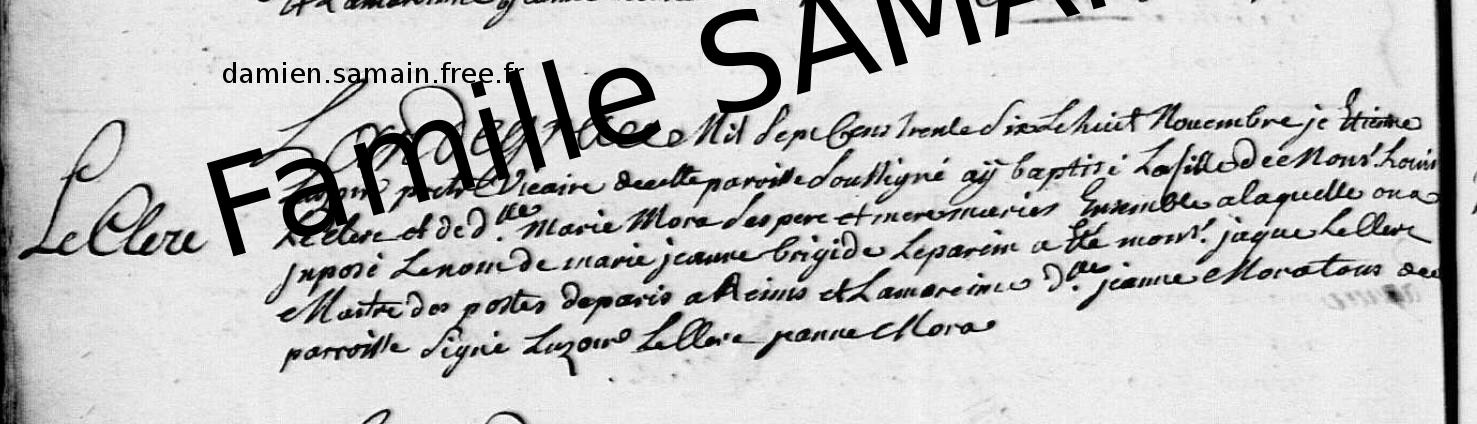 Famille SAMA
damien.samain.free.fr
LeClerc
L'an de grace Mil Sept Cens trente Six Le huit Nouembre je Etienne
pretre Vicaire de cette paroisse Soussigné aÿ baptisé La fille de Monsr. Louis
LeClerc et de dlle. Marie Mora Ses pere et mere mariés Ensemble a laquelle on a
jnposé Le nom de marie jeanne brigide Le parein a Eté monsr. jaque LeClerc
Maitre des postes de paris a Reims et La mareine dlle. jeanne Mora tous de
parroisse Signé Luzour LeClerc jeanne Mora